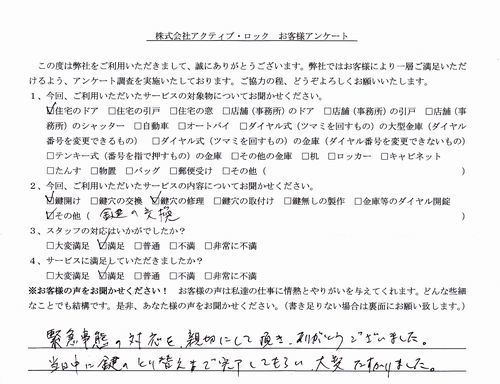 株式会社アクティブ・ロック　お客様アンケート
この度は弊社をご利用いただきまして、誠にありがとうございます。弊社ではお客様により一層ご満足いただ
けるよう、アンケート調査を実施いたしております。ご協力の程、どうぞよろしくお願いいたします。
1、今回、ご利用いただいたサービスの対象物についてお聞かせください。
☑住宅のドア □住宅の引戸 □住宅の窓 □店舗（事務所）のドア □店舗（事務所）の引戸 □店舗（事
務所）のシャッター □自動車 □オートバイ □ダイヤル式（ツマミを回すもの）の大型金庫（ダイヤル
番号を変更できるもの） □ダイヤル式（ツマミを回すもの）の金庫（ダイヤル番号を変更できないもの）
□テンキー式（番号を指で押すもの）の金庫 □その他の金庫 □机 □ロッカー □キャビネット
□たんす □物置 □バッグ □郵便受け □その他（ ）
2、今回、ご利用いただいたサービスの内容についてお聞かせください。
☑鍵開け □鍵穴の交換 ☑鍵穴の修理 □鍵穴の取付け □鍵無しの製作 □金庫等のダイヤル開錠
☑その他（ 鍵の交換 ）
3、スタッフの対応はいかがでしたか？
□大変満足 ☑満足 □普通 □不満 □非常に不満
4、サービスに満足していただきましたか？
□大変満足 ☑満足 □普通 □不満 □非常に不満
※お客様の声をお聞かせください！　お客様の声は私達の仕事に情熱とやりがいを与えてくれます。どんな些細
なことでも結構です。是非、あなた様の声をお聞かせください。（書き足りない場合は裏面にお願い致します。）
緊急事態の対応を、親切にして頂き、ありがとうございました。
当日中に鍵のとり替えまで完了してもらい大変たすかりました。